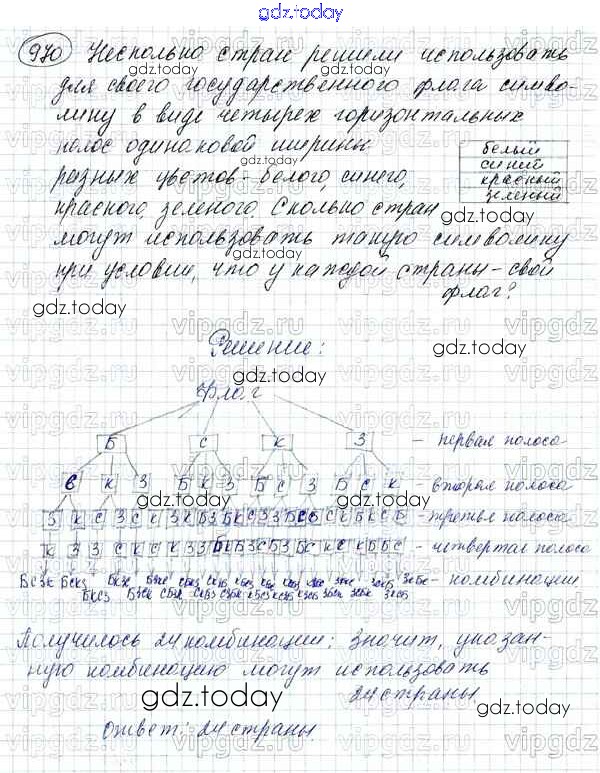 gdz.today
970 Несколько стран решили использовать
для своего государственного флага симво-
лику в виде четырех горизонтальных
полос одинаковой ширины
разных цветов - белого, синего,
красного, зеленого. Сколько стран
могут использовать такую символику
при условии, что у каждой страны - свой
флаг?
белый
синий
красный
зеленый
Решение:
Флаг
Б С К З - первая полоса
С К З Б К З Б С З Б С К - вторая полоса
- третья полоса
- четвертая полоса
- комбинации
Получилось 24 комбинации; значит, указан-
ную комбинацию могут использовать
24 страны.
Ответ: 24 страны.
gdz.today
vipgdz.ru